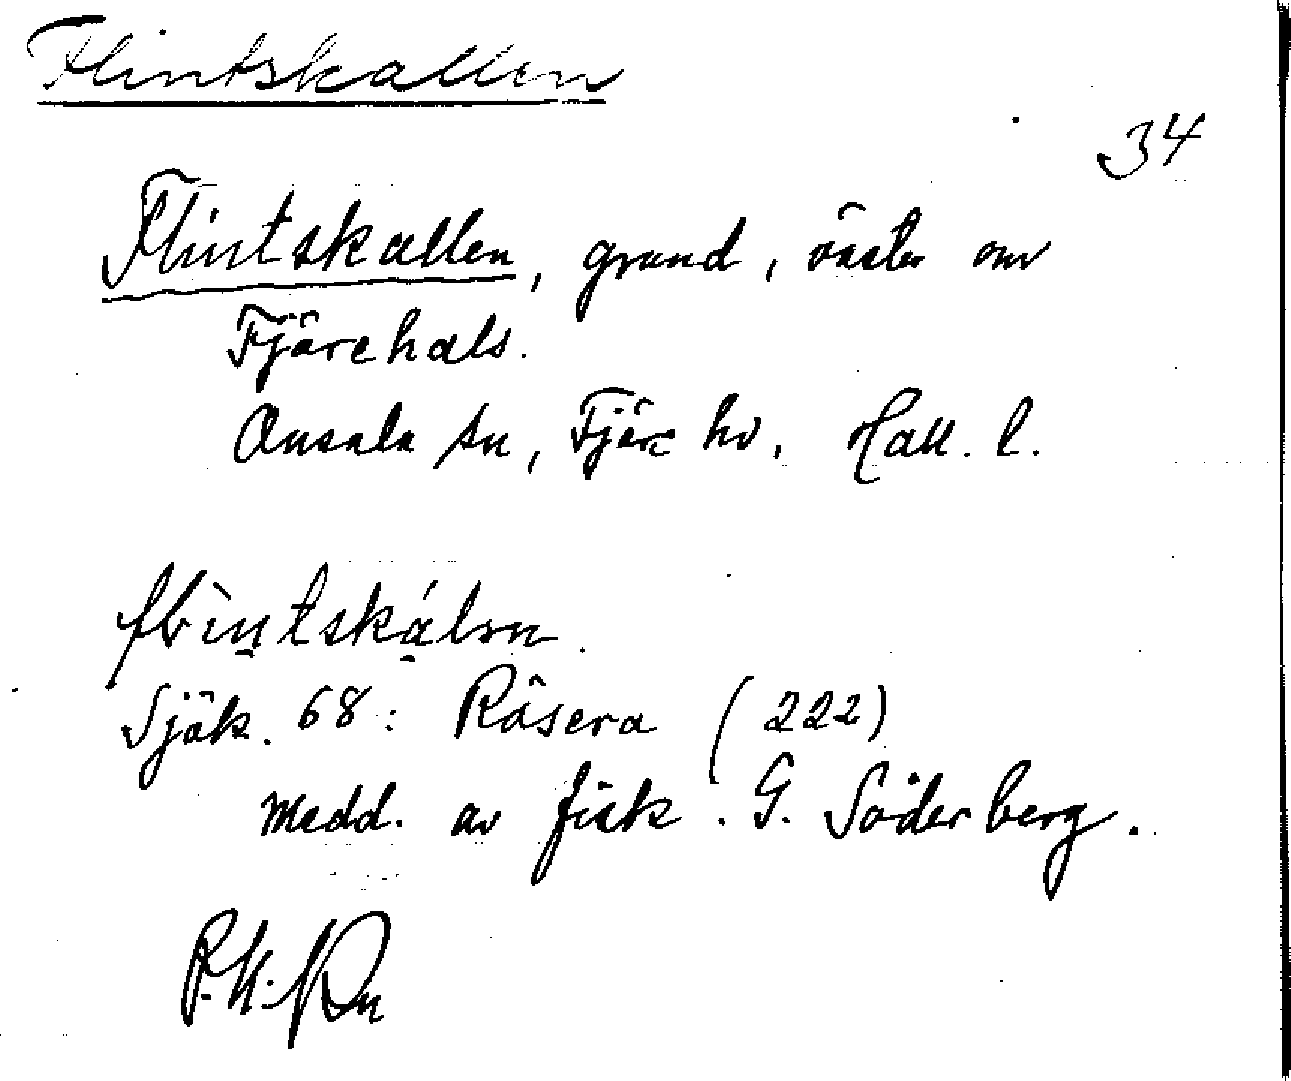 Flintskallen
34
Flintskallen, grund, öster om
Fjärehals.
Onsala sn, Fjäre hd, Hall. l.
Sjök. 68: Råsera (222)
Medd. av fisk. G. Söderberg.